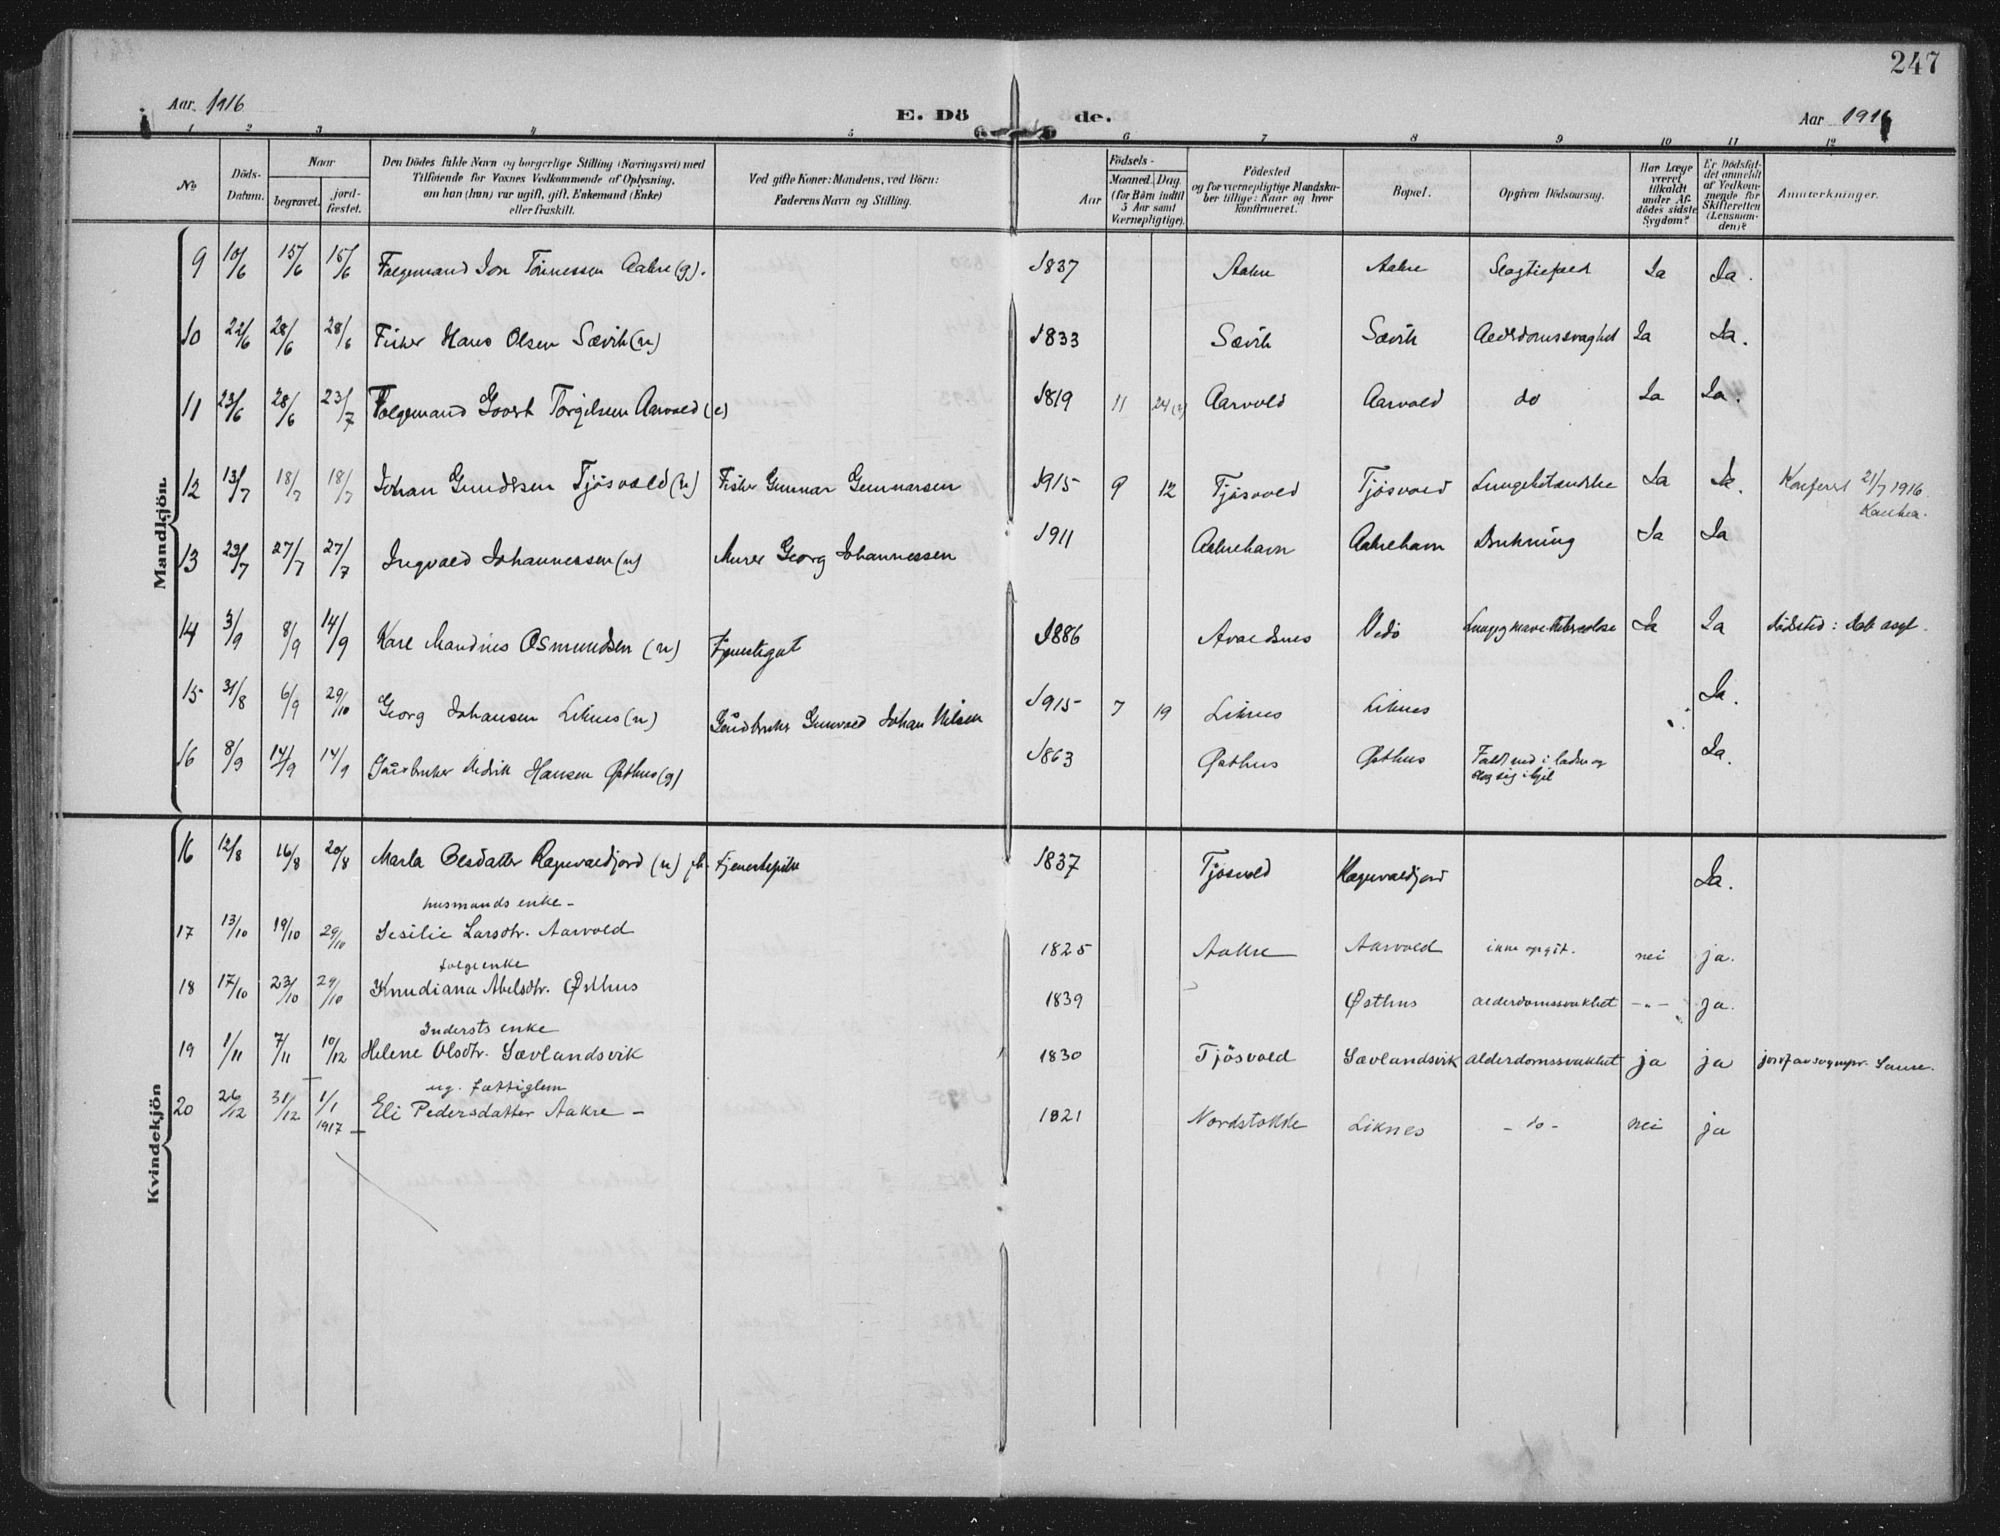 247
Aar 1916
E. Dö de.
Aar 1916
1 2 3 4 5 6 7 8 9 10 11 12
No
Döds-Datum.
Naar
begravet.
jord-fæstet.
Den Dödes fulde Navn og borgerlige Stilling (Næringsvei) med
Tilföiende for Voxnes Vedkommende af Oplysning,
om han (hun) var ugift, gift, Enkemand (Enke)
eller fraskilt.
Ved gifte Koner: Mandens, ved Börn:
Faderens Navn og Stilling.
Födsels-
Aar
Maaned. Dag.
(for Börn indtil
5 Aar samt
Værnepligtige).
Födested
og for værnepligtige Mandska-
ber tillige: Naar og hvor
konfirmeret.
Bopæl.
Opgiven Dödsaarsag.
Har Læge
været
tilkaldt
under Af-
dödes sidste
Sygdom?
Er Dödsfal-
det anmeldt
af Vedkom-
mende for
Skifteretten
(Lensman-
den)?
Anmærkninger.
Mandkjön.
9 10/6 15/6 15/6 Folgemand Jon Tönnessen Aakre (g). 1837 Aakre Aakre Slagtilfæld Ja Ja.
10 22/6 28/6 28/6 Fisker Hans Olsen Sævik (u) 1833 Sævik Sævik Alderdomssvaghed Ja Ja.
11 23/6 28/6 23/7 Folgemand Govert Torgilsen Aarvold (e) 1819 11 24 Aarvold Aarvold do Ja Ja.
12 13/7 18/7 18/7 Johan Gundersen Tjösvold (u) Fisker Gunnar Gunnarsen 1915 9 12 Tjösvold Tjösvold Lungebetændelse Ja Ja. Konferert 21/7 1916.
13 23/7 27/7 27/7 Ingvald Johannessen (u) Murer Georg Johannessen 1911 Aakrehavn Aakrehavn Drukning Ja Ja
14 3/9 8/9 14/9 Karl Mandius Osmundsen (u) Tjenestegut 1886 Avaldsnes Vedö Ja Ja dödsted:
15 31/8 6/9 29/10 Georg Johansen Liknes (u) Gårdbruker Gunvald Johan Nilsen 1915 7 19 Liknes Liknes Ja.
16 8/9 14/9 14/9 Gårdbruker Hansen Østhus (g) 1863 Østhus Østhus Faldt ned i laden og
slog sig ihjel Ja.
Kvindekjön
16 12/8 16/8 20/8 Marta Olsdatter Ragnvaldjord (u) Tjenestepike 1837 Tjösvold Ragnvaldjord Ja.
husmands enke -
17 13/10 19/10 29/10 Sesilie Larsdtr. Aarvold 1825 Aakre Aarvold ikke opgit. nei ja.
folge enke
18 17/10 23/10 29/10 Knudiana Abelsdtr. Østhus 1839 Østhus alderdomssvakhet -"- ja.
Inderst enke
19 1/11 7/11 10/12 Helene Olsdtr. Sævlandsvik 1830 Tjösvold Sævlandsvik alderdomssvakhet ja ja
ug. fattiglem
20 26/12 31/12 1/1 1917 Eli Pedersdatter Aakre - 1821 Nordstokke Liknes - do - nei ja